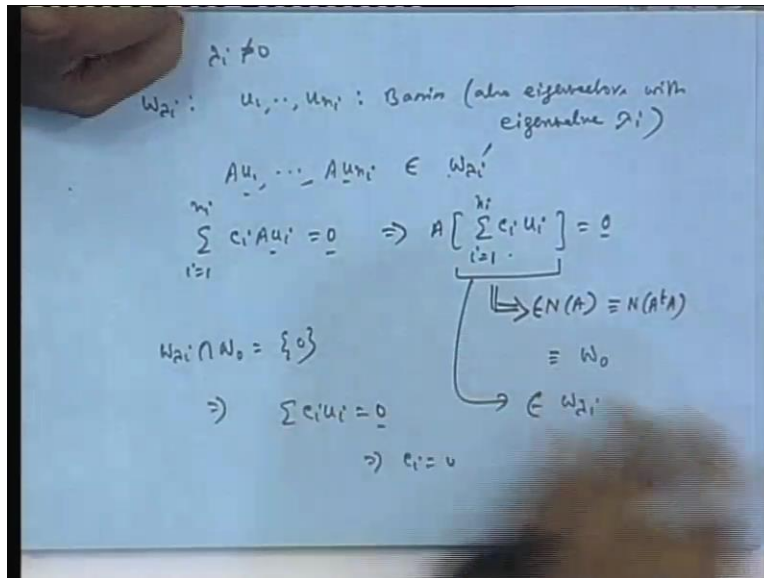 λi ≠ 0
Wλi : u1, .., uni : Basis (also eigenvectors with
eigenvalue λi)
Au1, ..., Auni ∈ Wλi'
ni ∑ i=1 ci Aui = 0 ⇒ A [ ni ∑ i=1 ci ui ] = 0
⇒ ∈ N(A) ≡ N(AᵗA)
Wλi ∩ W0 = {0}
≡ W0
⇒ ∑ ci ui = 0
→ ∈ Wλi
⇒ ci = 0